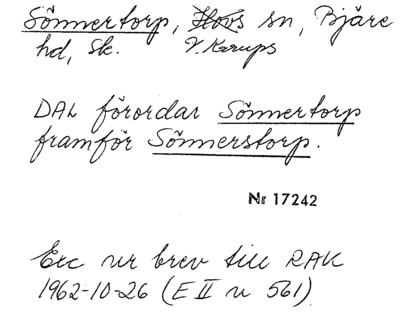 Sönnertorp, Hovs sn, Bjäre
hd, Sk. V. Karups
DAL förordar Sönnertorp
framför Sönnerstorp.
Nr 17242
Exc ur brev till RAK
1962-10-26 (E II u 561)